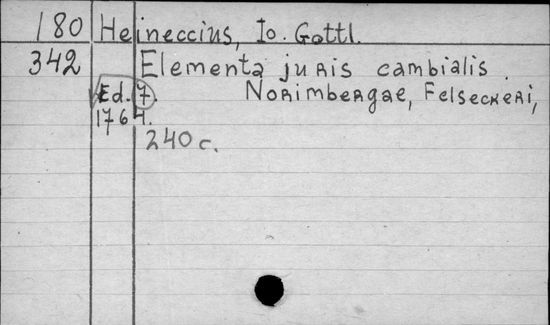 180 Heineccius, Io. Gottl.
342 Elementa juris cambialis.
Ed. 7. Norimbergae, Felseckeri,
1764.
240 c.